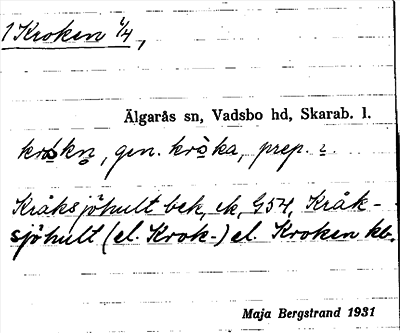 1 Kroken 1/4,
Älgarås sn, Vadsbo hd, Skarab. l.
gen. kròka, prep. i.
Kråksjöhult bek, ek, G54, Kråk-
sjöhult (el. Krok-) el. Kroken kb.
Maja Bergstrand 1931